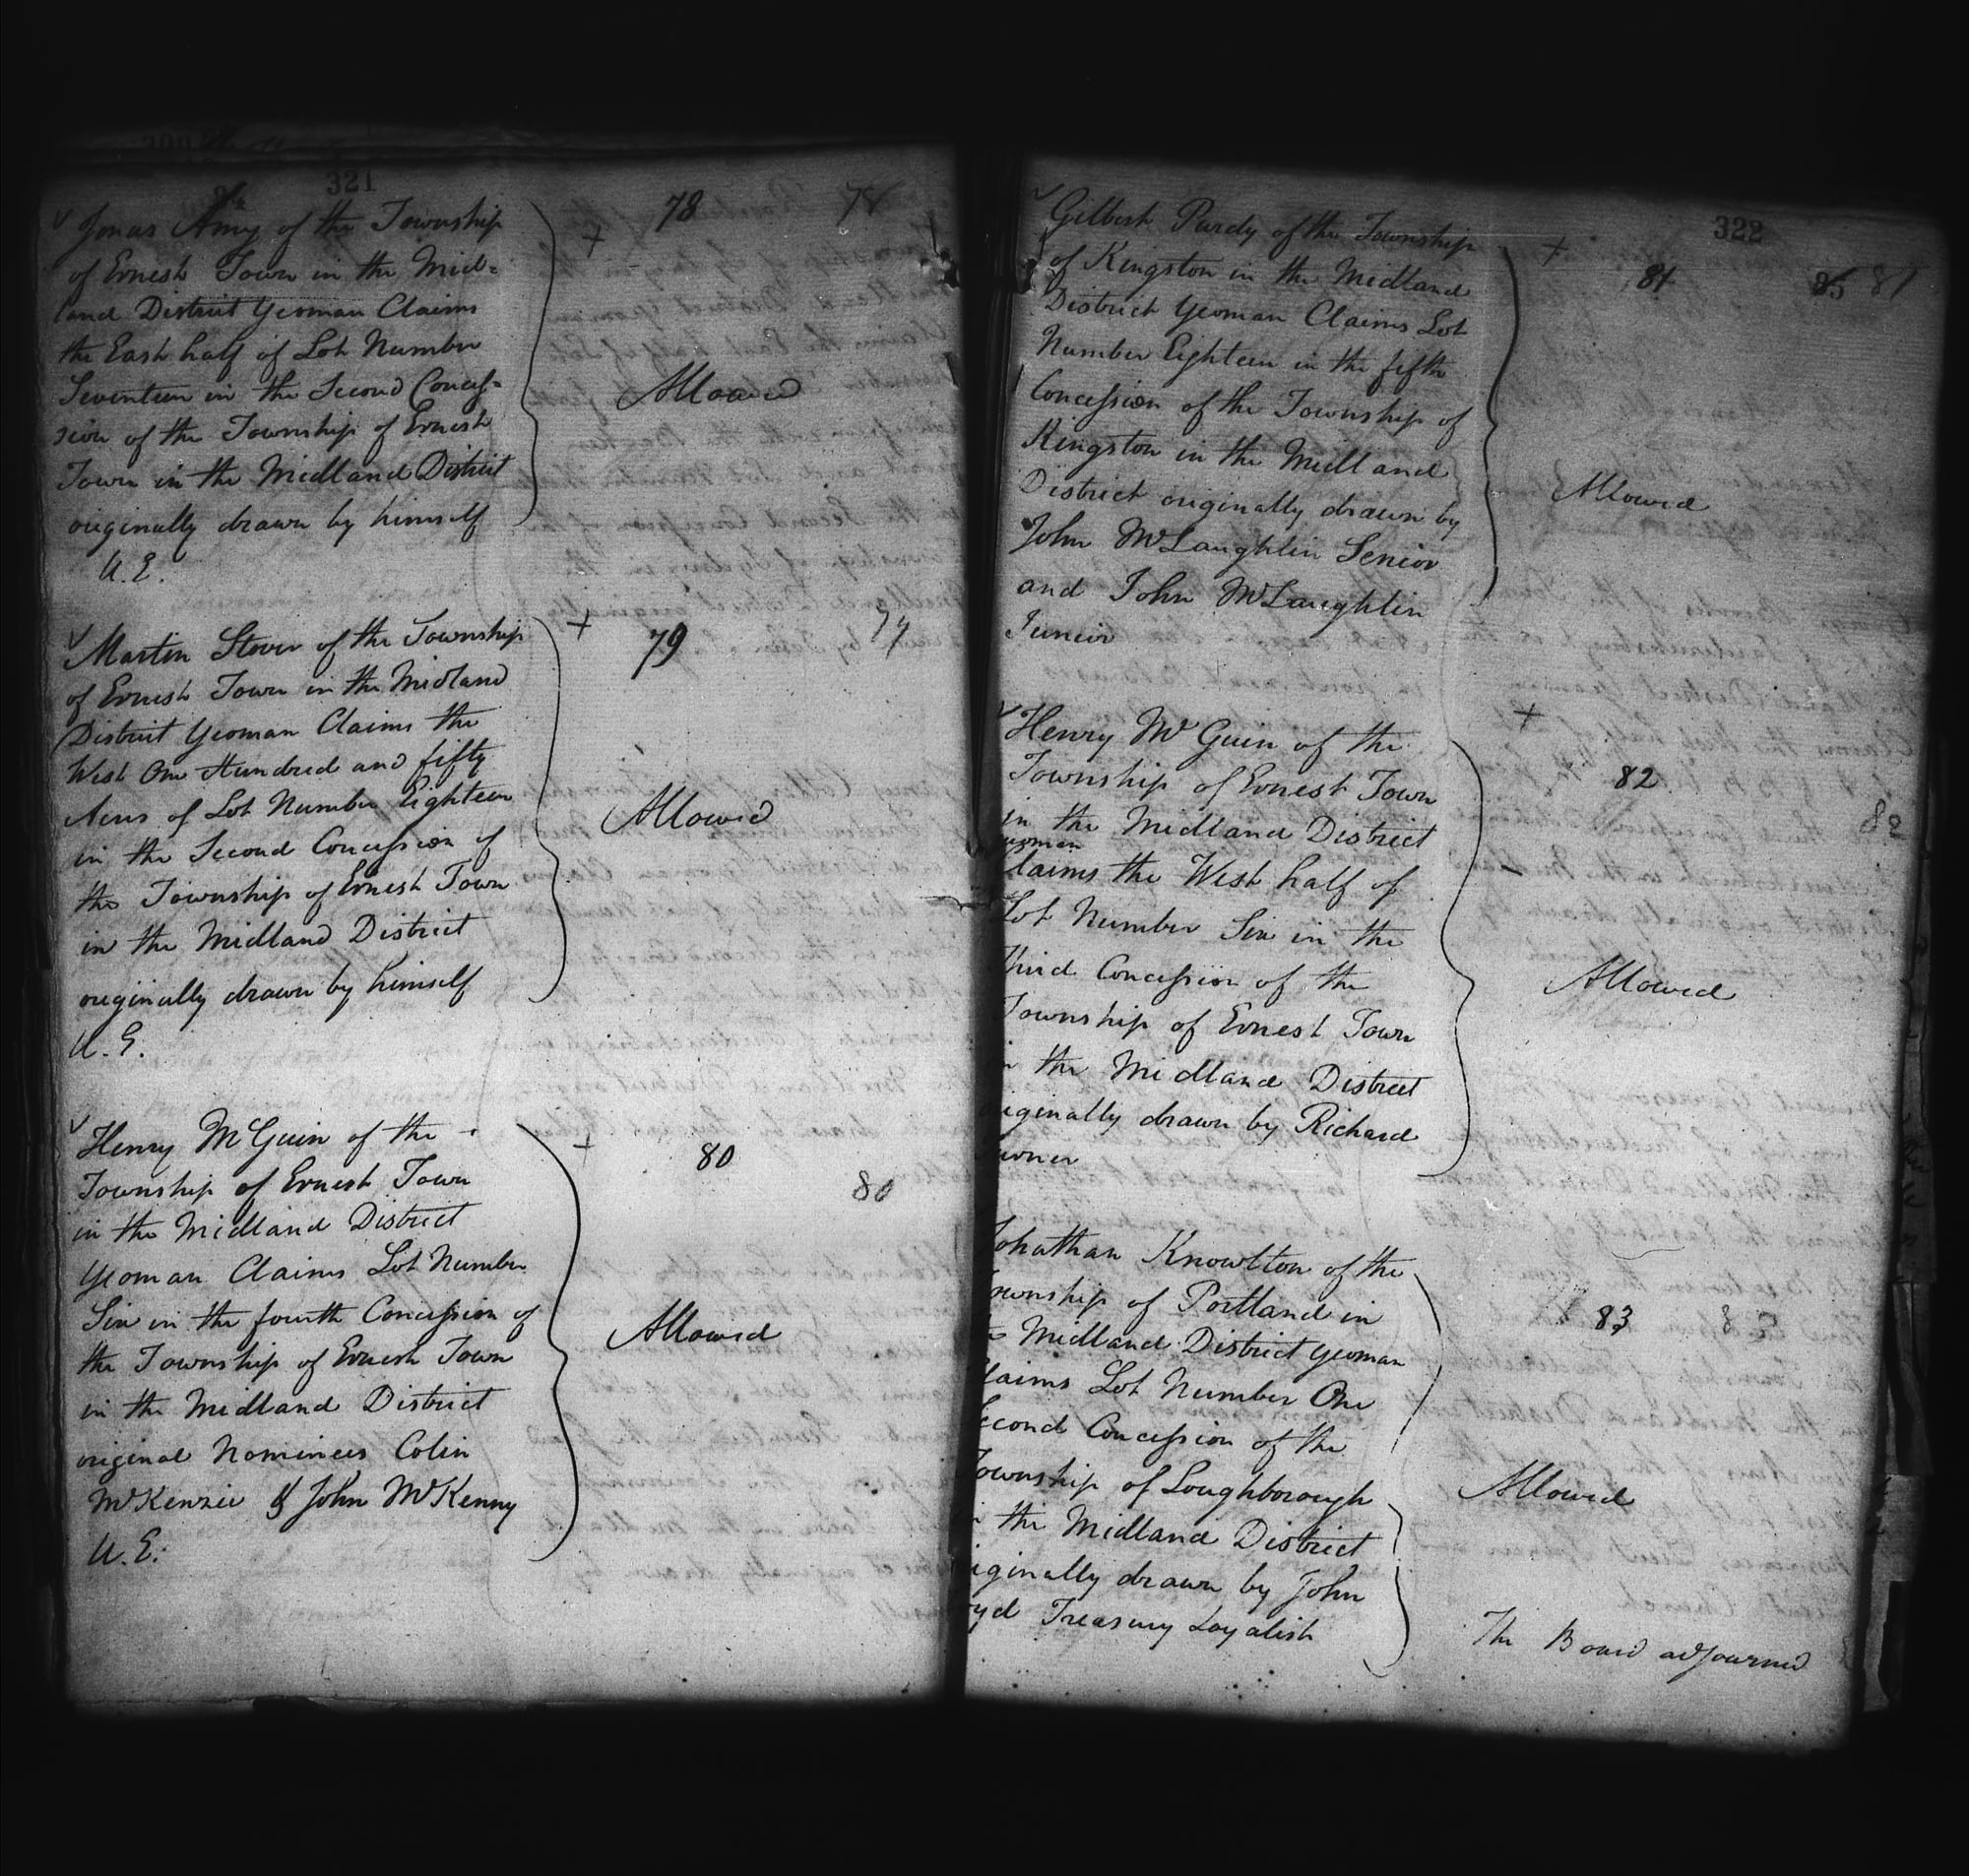 321
Jonas Amy of the Township
of Ernest Town in the Mid=
land District Yeoman Claims
the East half of Lot Number
Seventeen in the Second Conces=
sion of the Township of Ernest
Town in the Midland District
originally drawn by himself
U.E.
+ 78
Allowed
Martin Stover of the Township
of Ernest Town in the Midland
District Yeoman Claims the
West One Hundred and fifty
Acres of Lot Number Eighteen
in the Second Concession of
the Township of Ernest Town
in the Midland District
originally drawn by himself
U.E.
+ 79
Allowed
Henry McGuin of the
Township of Ernest Town
in the Midland District
Yeoman Claims Lot Number
Six in the fourth Concession of
the Township of Ernest Town
in the Midland District
original Nominees Colin
McKenzie & John McKenny
U.E.
+ 80 80
Allowed
322
Gilbert Purdy of the Township
of Kingston in the Midland
District Yeoman Claims Lot
Number Eighteen in the fifth
Concession of the Township of
Kingston in the Midland
District originally drawn by
John McLaughlin Senior
and John McLaughlin
Junior
+ 81 81
Allowed
Henry McGuin of the
Township of Ernest Town
in the Midland District
yeoman
Claims the West half of
Lot Number Six in the
Third Concession of the
Township of Ernest Town
in the Midland District
originally drawn by Richard
+ 82 82
Allowed
Johathan Knowlton of the
Township of Portland in
Midland District Yeoman
Claims Lot Number One
Second Concession of the
Township of Loughborough
the Midland District
originally drawn by John
Treasury Loyalist
83 83
Allowed
The Board adjourned